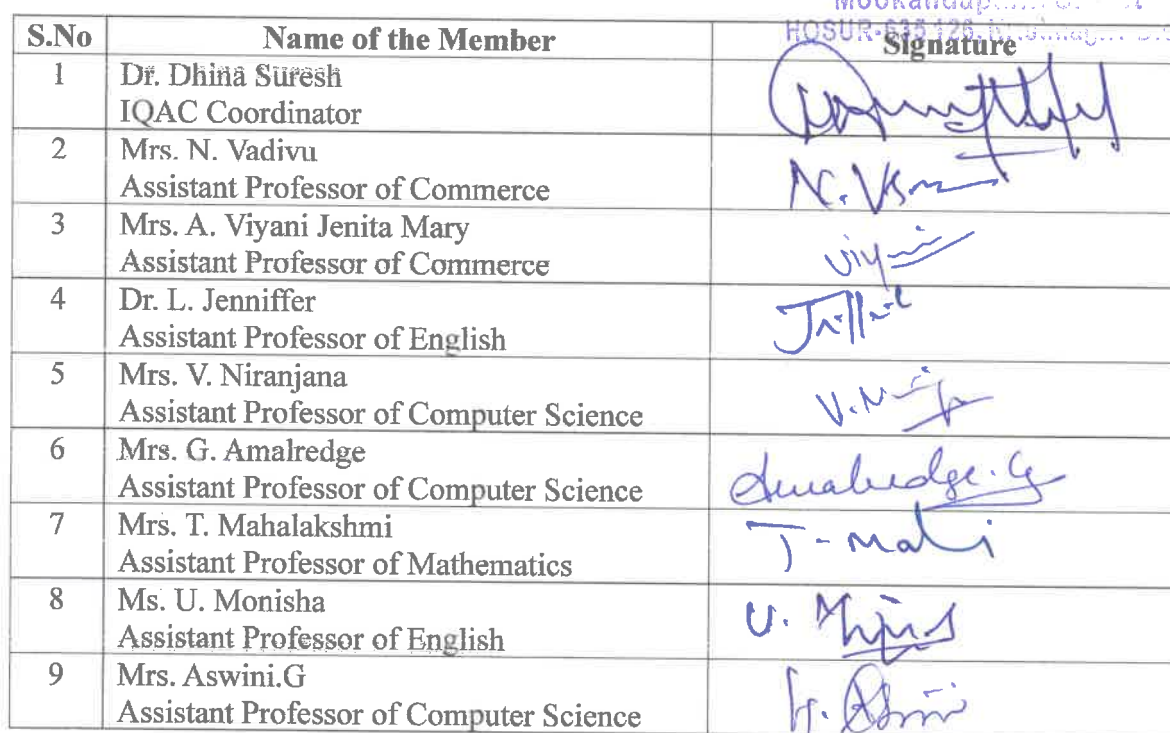 HOSUR-635 126.
S.No Name of the Member Signature
1 Dr. Dhina Suresh
IQAC Coordinator
2 Mrs. N. Vadivu
Assistant Professor of Commerce
N. V
3 Mrs. A. Viyani Jenita Mary
Assistant Professor of Commerce
4 Dr. L. Jenniffer
Assistant Professor of English
5 Mrs. V. Niranjana
Assistant Professor of Computer Science
6 Mrs. G. Amalredge
Assistant Professor of Computer Science
Amalredge. G
7 Mrs. T. Mahalakshmi
Assistant Professor of Mathematics
8 Ms. U. Monisha
Assistant Professor of English
9 Mrs. Aswini.G
Assistant Professor of Computer Science